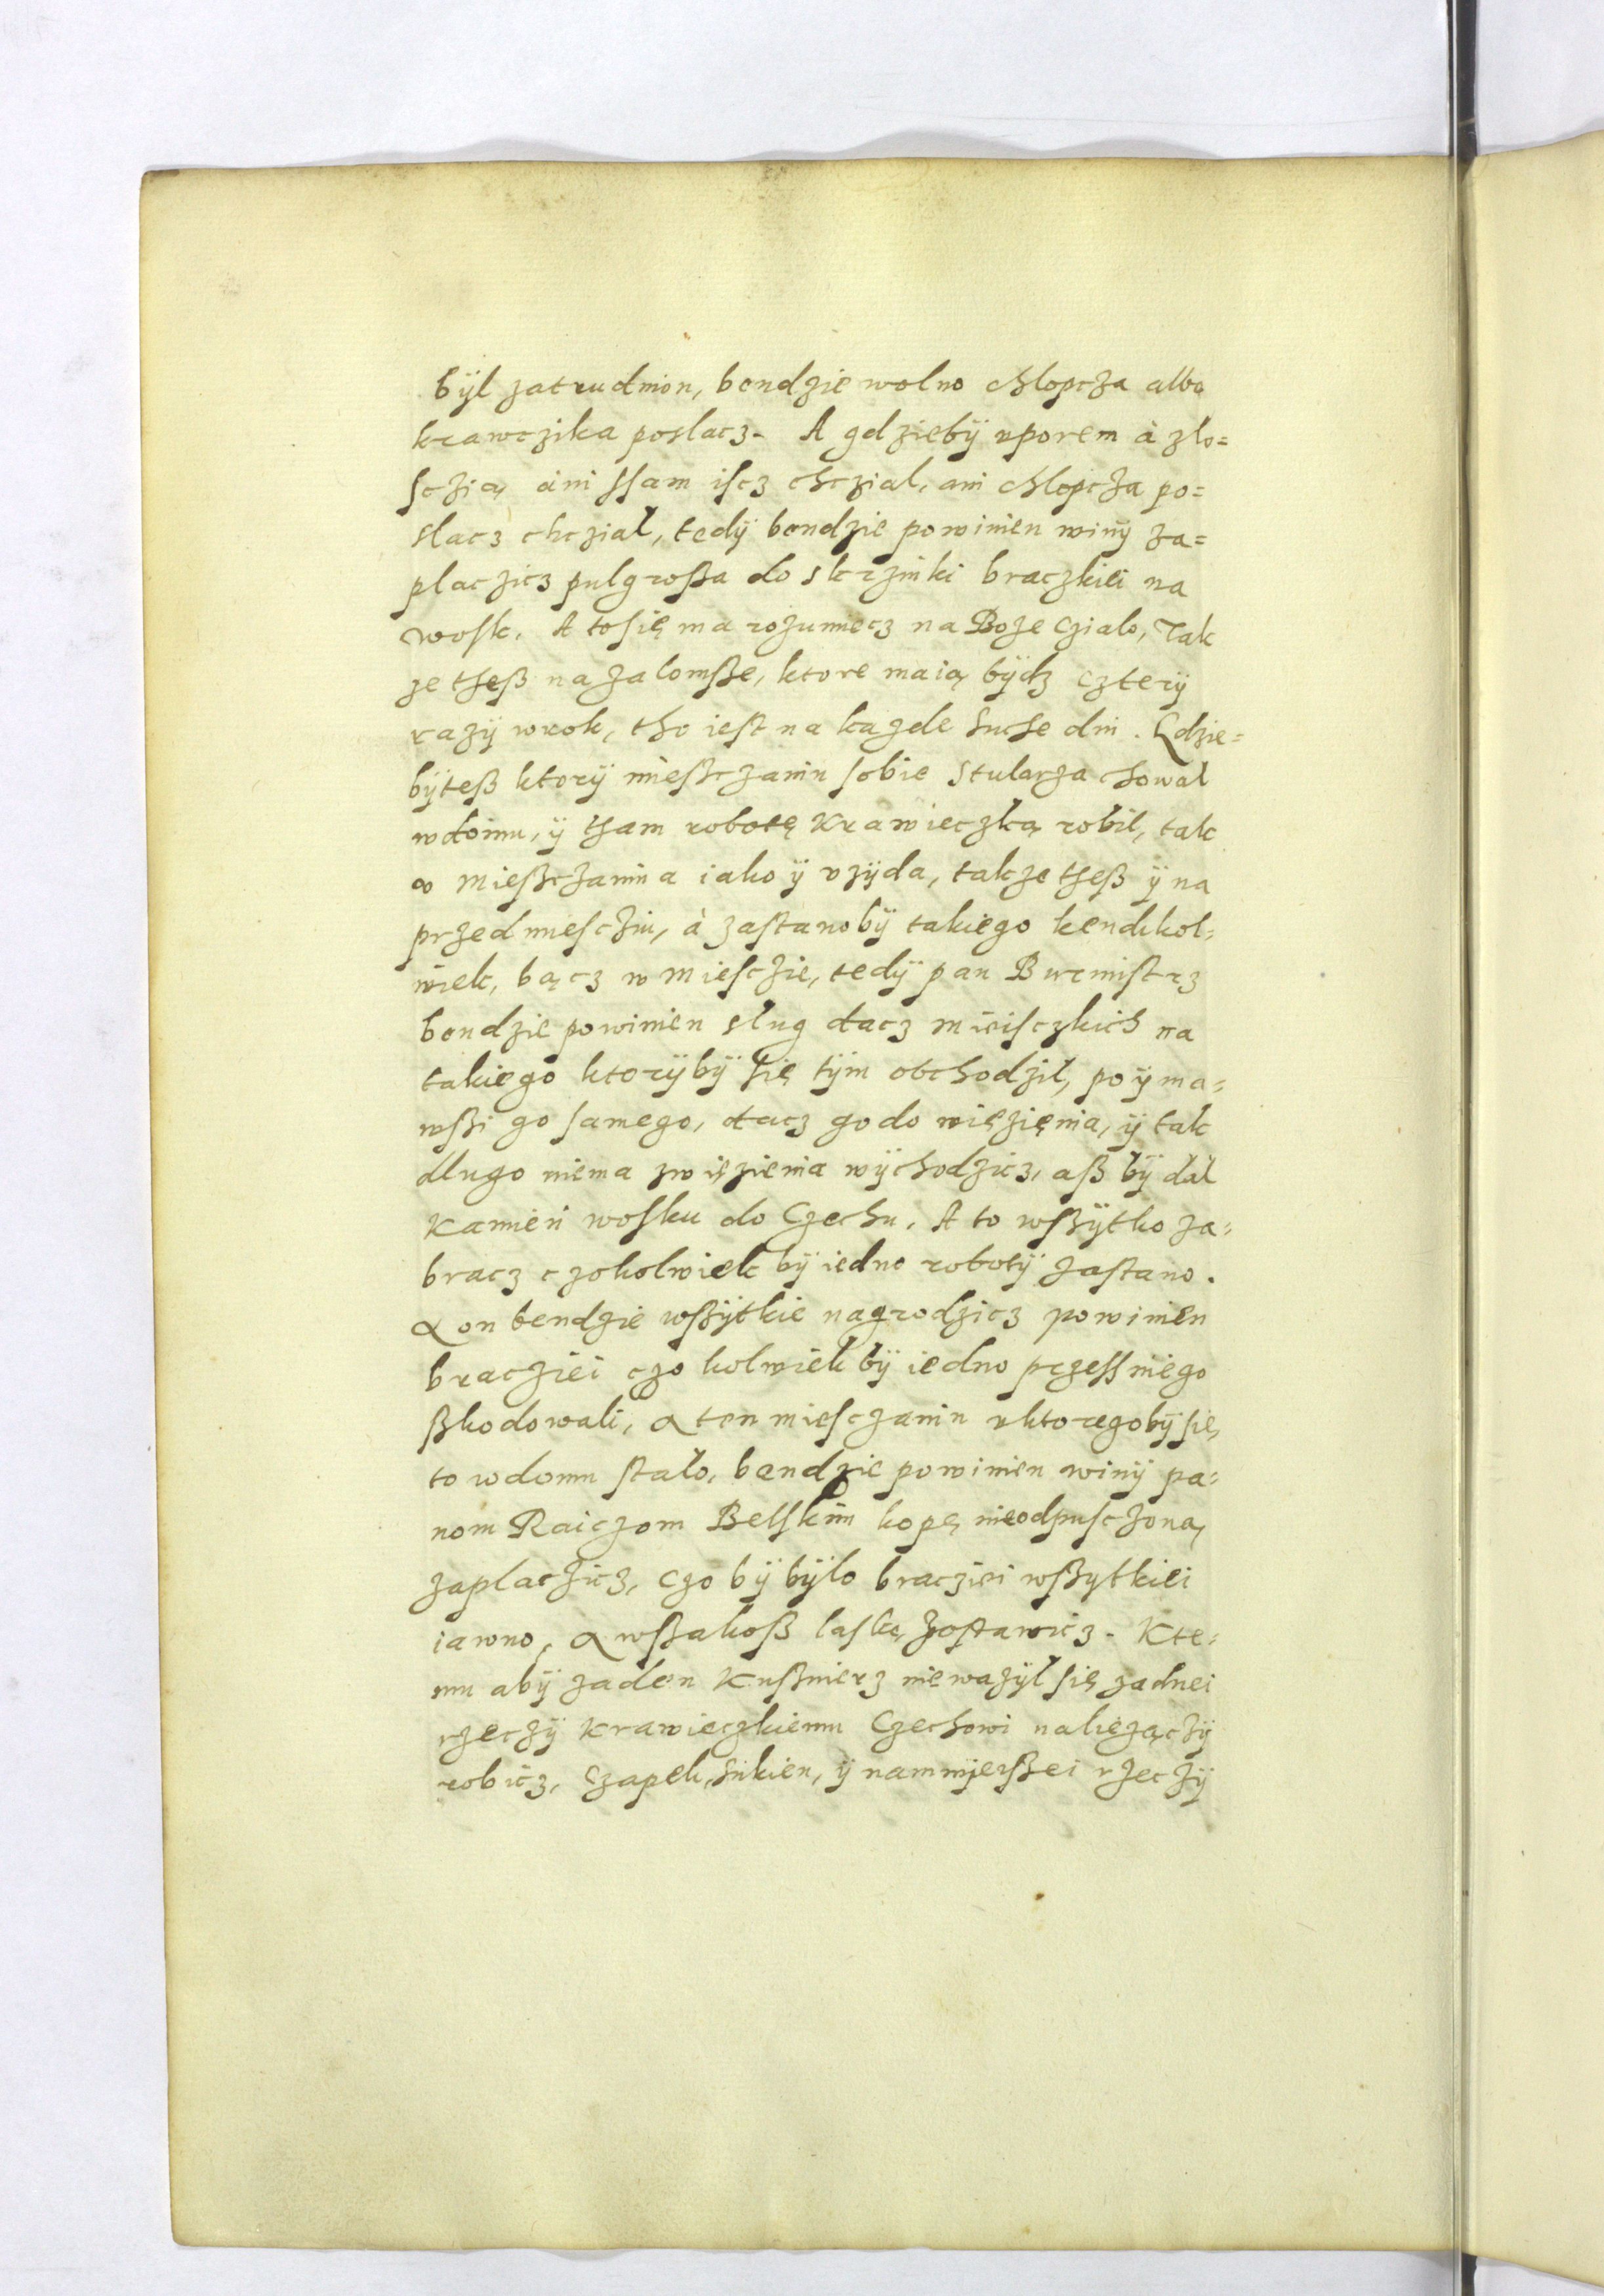 bÿl zatrudnion, bendzie wolno chlopcza albo
krawczika poslacz. A gdziebÿ uporem à zlo=
ſczią, áni ſſam iſcz chczial, ani chlopcza po=
slacz chczial, tedÿ bendzie powinien winÿ za=
placzicz pulgroßa do skrzinki braczkiei na
woſk. A toſię ma rozumiecz na Boże Czialo, Tak
że theß na zalomße, ktore maią bÿdz czterÿ
razÿ wrok, tho ieſt na każde Suche dni. Gdzie=
bÿteß ktorÿ mießczanin ſobie Stularza chowal
wdomu, ÿ tham robotę Krawieczką robil, tak
v Mießczanina iako ÿ vżÿda, także theß ÿ na
przedmieſcziu, à zaſtanobÿ takiego kendikol=
wiek, bącz w Mieſczie, tedÿ pan Burmiſtrz
bendzie powinien slug dacz Mieiſczkich na
takiego ktorÿbÿ ſię tÿm obchodzil, poÿma=
wßi go ſamego, dacz godo więzięnia, ÿ tak
dlugo niema zwięzienia wÿchodzicz, aß bÿ dal
Kamień woſku do Czechu. A to wßÿtko za=
bracz czokolwiek bÿ iedno robotÿ zaſtano.
A on bendzie wßÿtkie nagrodzicz powinien
bracziei czo kolwiek bÿ iedno przeſſniego
ßkodowali, A ten mieſczanin uktoregobÿ ſię
to wdomu ſtalo, bendzie powinien winÿ pa=
nom Raiczom Belſkim kopę nieodpuſczoną,
zaplaczicz, Czo bÿ bÿlo bracziei wßytkiei
iawno, A wßakoß laſkę zoſtawicz. Kte=
mu abÿ żaden Kußnierz nieważÿl ſię żadnei
rzeczÿ Krawieczkiemu Czechowi należączÿ
robicz, Czapek, Sukien, ÿ namnieißei rzeczÿ